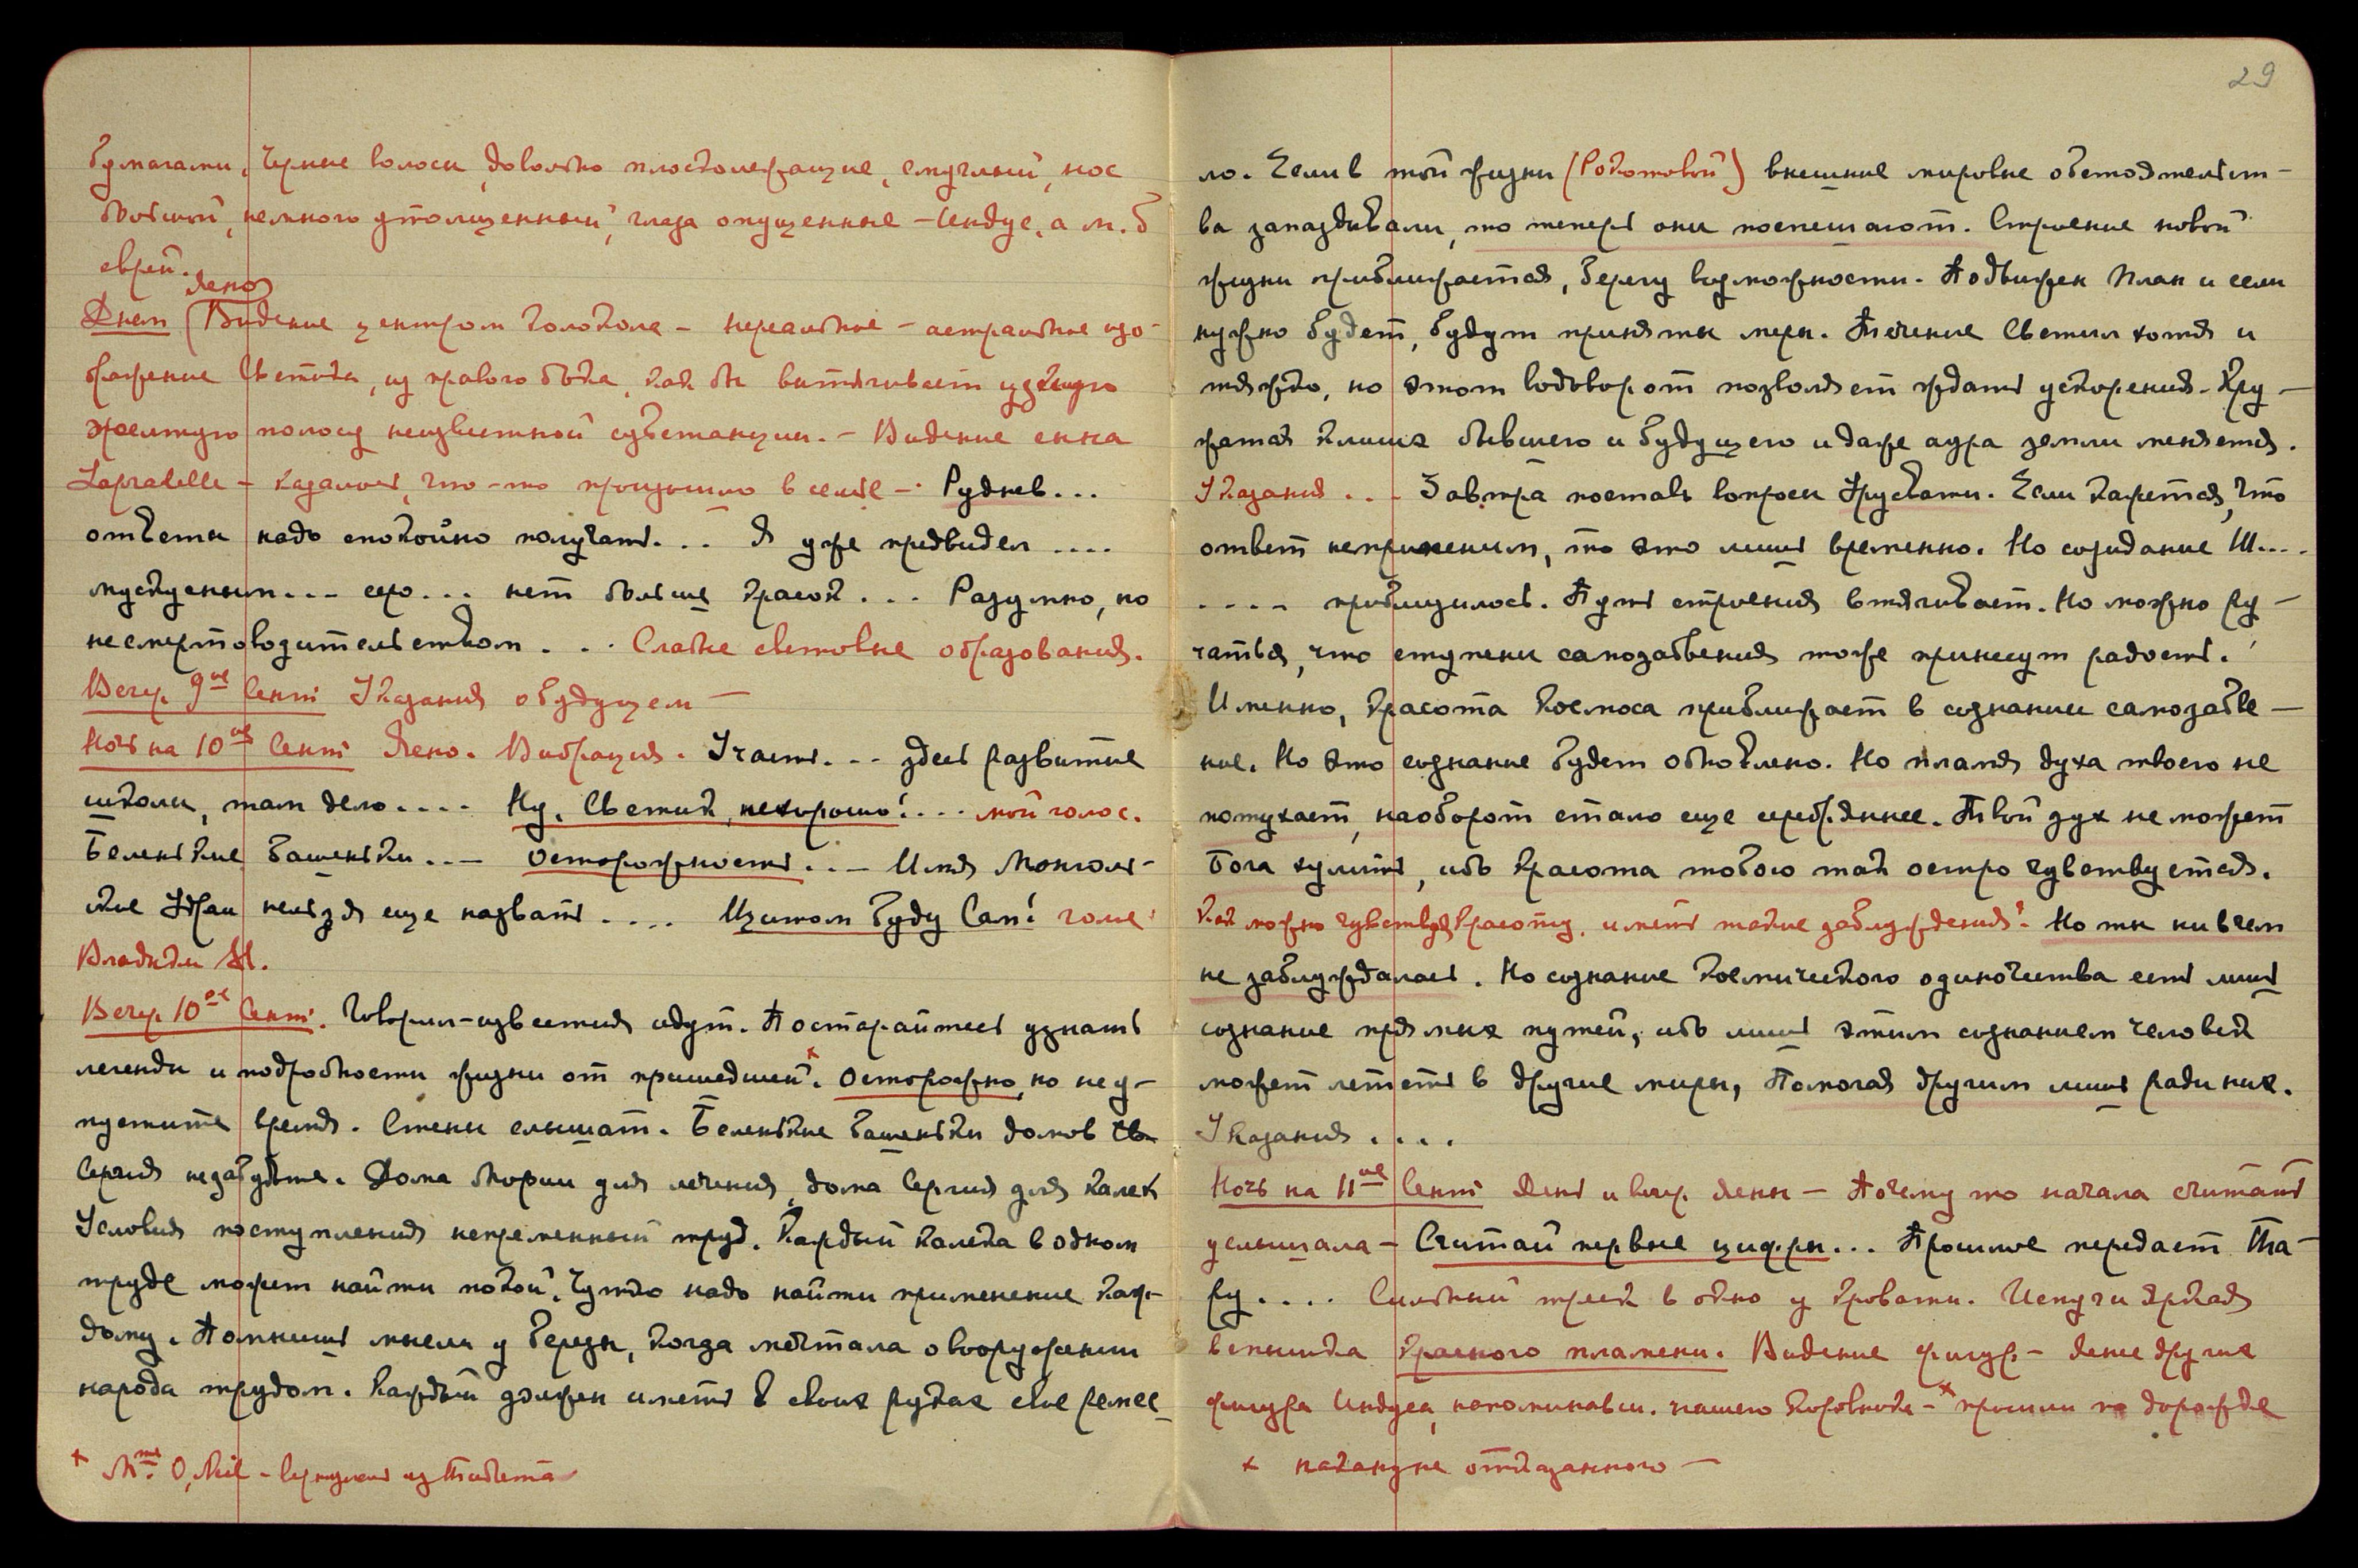 бумагами. Черные волосы, довольно плосколежащие, смуглый, нос
большой, немного утолщенный, глаза опущенные – Индус, а м. б
еврей.
ясно
Днем (Видение центром Колокола – нереальное – астральное изо-
бражение Светика, из правого бока, как бы вытягивает узкую
желтую полосу неизвестной субстанции. – Видение сына
Lapradelle – казалось, что-то произошло в семье – Руднев...
ответы надо спокойно получать... Я уже предвидел ....
мускусным... серо... нет больше красок... Разумно, но
не смертоводительством... Слабые световые образования.
Вечер 9ое Сент Указания о будущем –
Ночь на 10ое Сент Ясно. Вибрация. Участь... здесь развитие
школы, там дело.... Ну, Светик, нехорошо!.... мой голос.
Беленькие башеньки... Осторожность... Имя Монголь-
ское Удраи нельзя еще назвать.... Щитом буду Сам! голос
Владыки М.
Вечер 10ое Сент. Говорил – известия идут. Постарайтесь узнать
легенды и подробности жизни от пришедшей.× Осторожно, но не у-
пустите время. Стены слышат. Беленькие башеньки домов
Сергия не забудьте. Дома Мории для лечения, дома Сергия для калек
Условия поступления непременный труд. Каждый калека в одном
труде может найти покой. Чутко надо найти применение каж-
дому. Помнишь мысли у березы, когда мечтала о вооружении
народа трудом. Каждый должен иметь в своих руках свое ремес-
× Mme O,Neil – вернулась из Тибета
29
ло. Если в той жизни (Рокотовой) внешние мировые обстоятельст-
ва запаздывали, то теперь они поспешают. Строение новой
жизни приближается, берегу возможности. Подвижен План и если
нужно будет, будут приняты меры. Течение Светил хотя и
тяжко, но этот водоворот позволяет ждать ускорения. Кру-
жатся клише бывшего и будущего и даже аура земли меняется.
Указания... Завтра поставь вопросы Урусвати. Если кажется, что
ответ неприменим, то это лишь временно. Но созидание Ш....
.... приблизилось. Путь строения втягивает. Но можно ру-
чаться, что ступени самозабвения тоже принесут радость.
Именно, Красота Космоса приближает в сознании самозабве-
ние. Но это сознание будет обновлено. Но пламя духа твоего не
потухает, наоборот стало еще серебряннее. Твой дух не может
Бога хулить, ибо Красота тобою так остро чувствуется.
Как можно чувствуя Красоту, иметь такие заблуждения? Но ты ни в чем
не заблуждалась. Но сознание Космического одиночества есть лишь
сознание прямых путей, ибо лишь этим сознанием человек
может лететь в другие миры, Помогая другим лишь ради них.
Указания....
Ночь на 11ое Сент День и вечер ясны – Почему то начала считать
услышала – Считай первые цифры... Прошлое передает Та-
ру.... Сильный треск в окно у кровати. Испуг и яркая
вспышка красного пламени. Видение фигур – яснее других
фигура Индуса, напоминавш. нашего Коровкода –× прошли по дорожке
× накануне отказанного –